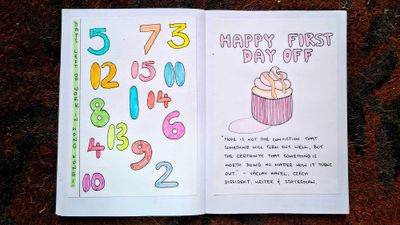 DAYS LEFT OF WORK IN HONG KONG!
5 7 3
12 15 11
8 1 14
13 6
4 9
10 2
HAPPY FIRST
DAY OFF
"HOPE IS NOT THE CONVICTION THAT
SOMETHING WILL TURN OUT WELL, BUT
THE CERTAINTY THAT SOMETHING IS
WORTH DOING NO MATTER HOW IT TURNS
OUT." - VÁCLAV HAVEL, CZECH
DISSIDENT, WRITER & STATESMAN.